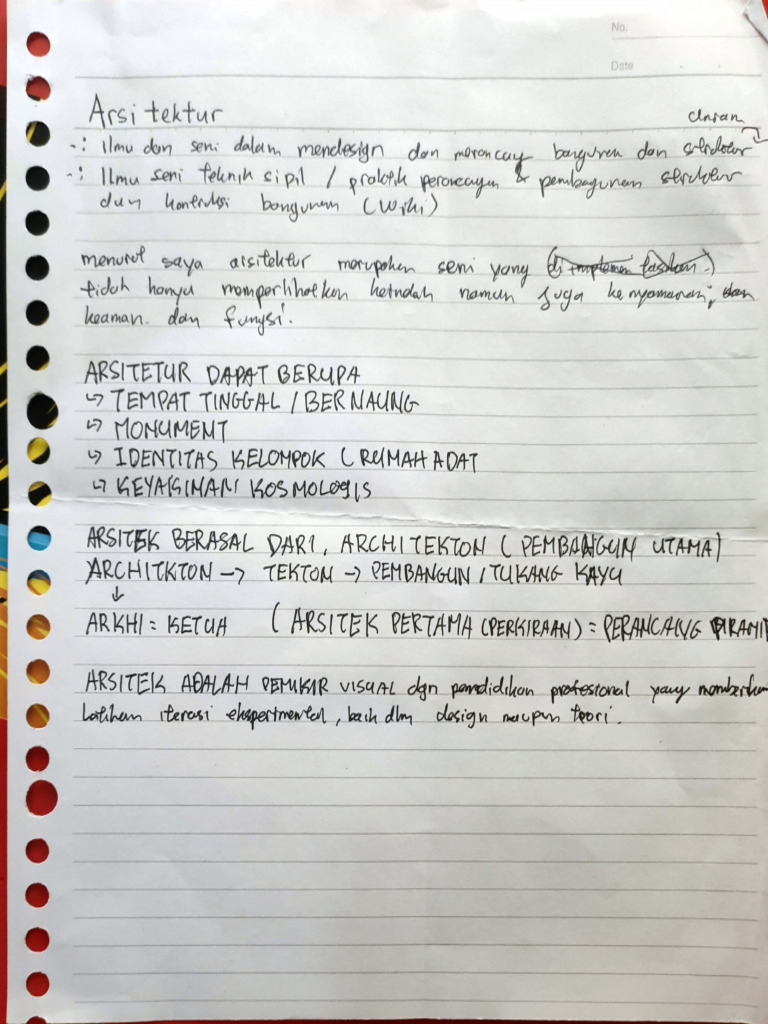 No.
Date
Arsitektur
-: Ilmu dan seni dalam mendesign dan merancang bangunan dan struktur
-: Ilmu seni teknik sipil / praktik perancangan & pembagunan struktur
dan kontruksi bangunan (Wiki)
menurut saya arsitektur merupakan seni yang (di implemen tasikan.)
tidak hanya memperlihatkan keindah namun juga kenyamanan, dan
keaman. dan fungsi.
ARSITETUR DAPAT BERUPA
↳ TEMPAT TINGGAL / BERNAUNG
↳ MONUMENT
↳ IDENTITAS KELOMPOK (RUMAH ADAT
↳ KEYAKINAN KOSMOLOGIS
ARSITEK BERASAL DARI, ARCHITEKTON (PEMBANGUN UTAMA)
ARCHITKTON → TEKTON → PEMBANGUN / TUKANG KAYU
↓
ARKHI = KETUA (ARSITEK PERTAMA (PERKIRAAN) = PERANCANG PIRAMI
ARSITEK ADALAH PEMIKIR VISUAL dgn pendidikan profesional yang memberikan
latihan iterasi eksperimental, baik dlm design maupun teori.